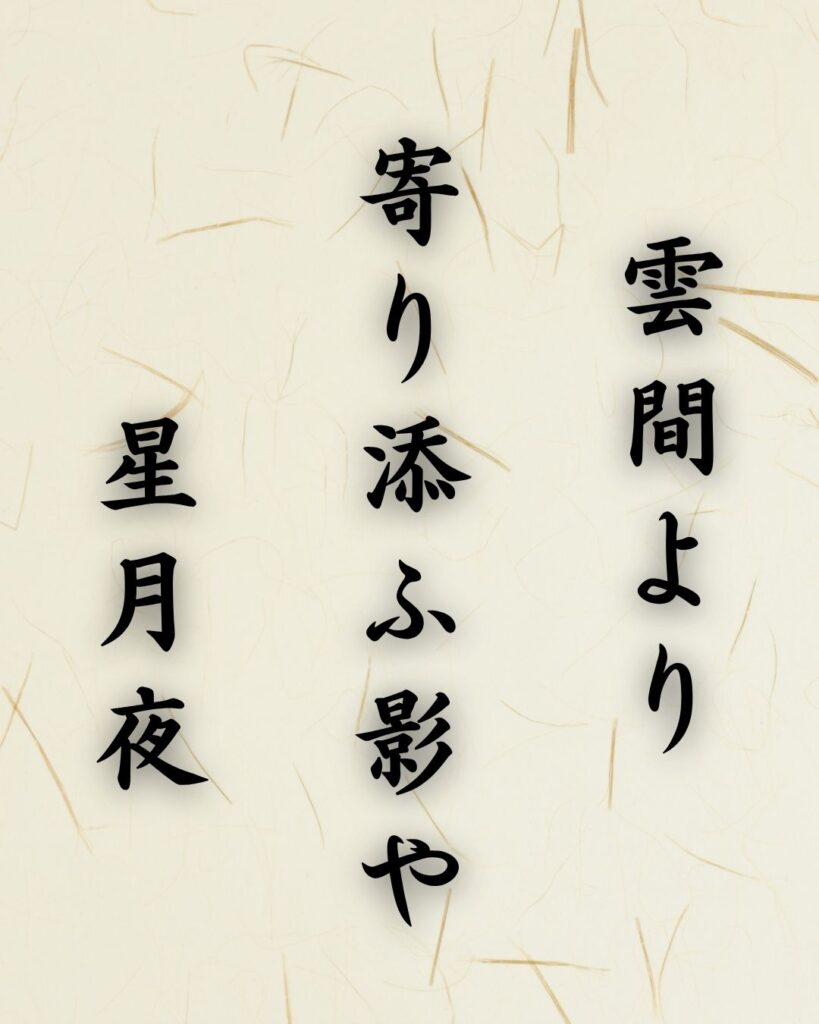 雲間より
寄り添ふ影や
星月夜